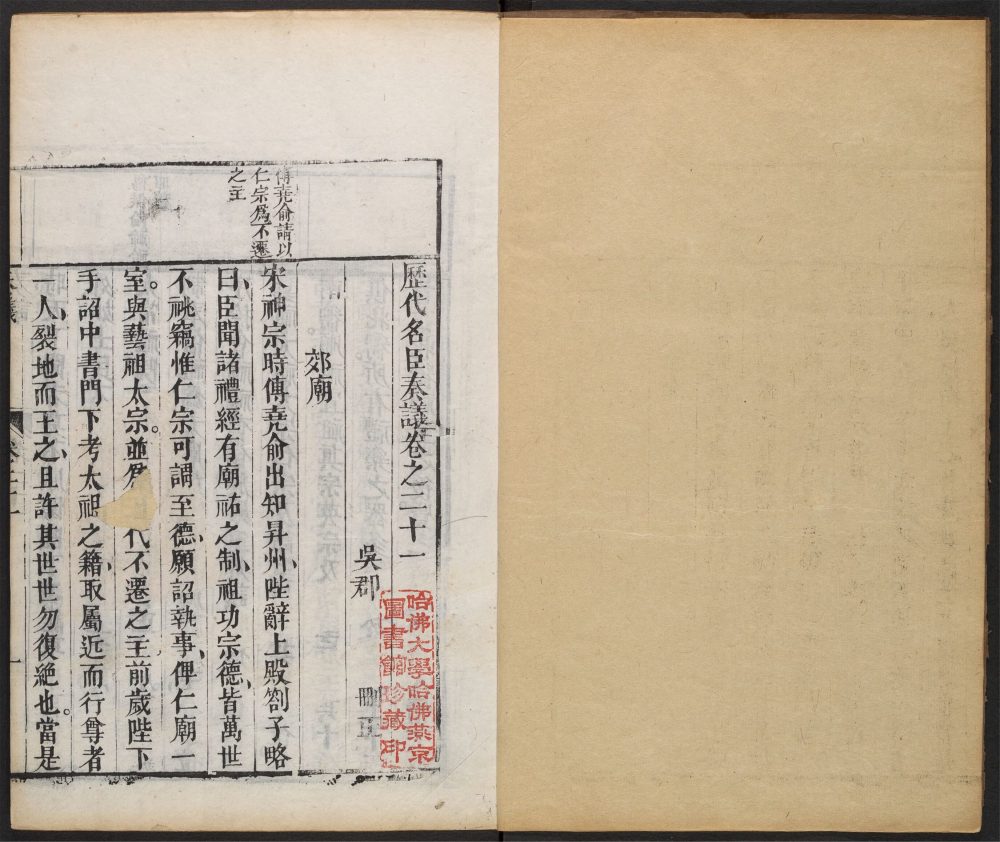 歷代名臣奏議卷之二十一
吳郡
刪正
郊廟
傅堯俞請以
仁宗爲不遷
之主
宋神宗時傅堯俞出知昇州陛辭上殿劄子略
曰臣聞諸禮經有廟祏之制祖功宗德皆萬世
不祧竊惟仁宗可謂至德願詔執事俾仁廟一
室與藝祖太宗並爲代不遷之主前歲陛下
手詔中書門下考太祖之籍取屬近而行尊者
一人裂地而王之且許其世世勿復絶也當是
哈佛大學哈佛燕京
圖書館珍藏印